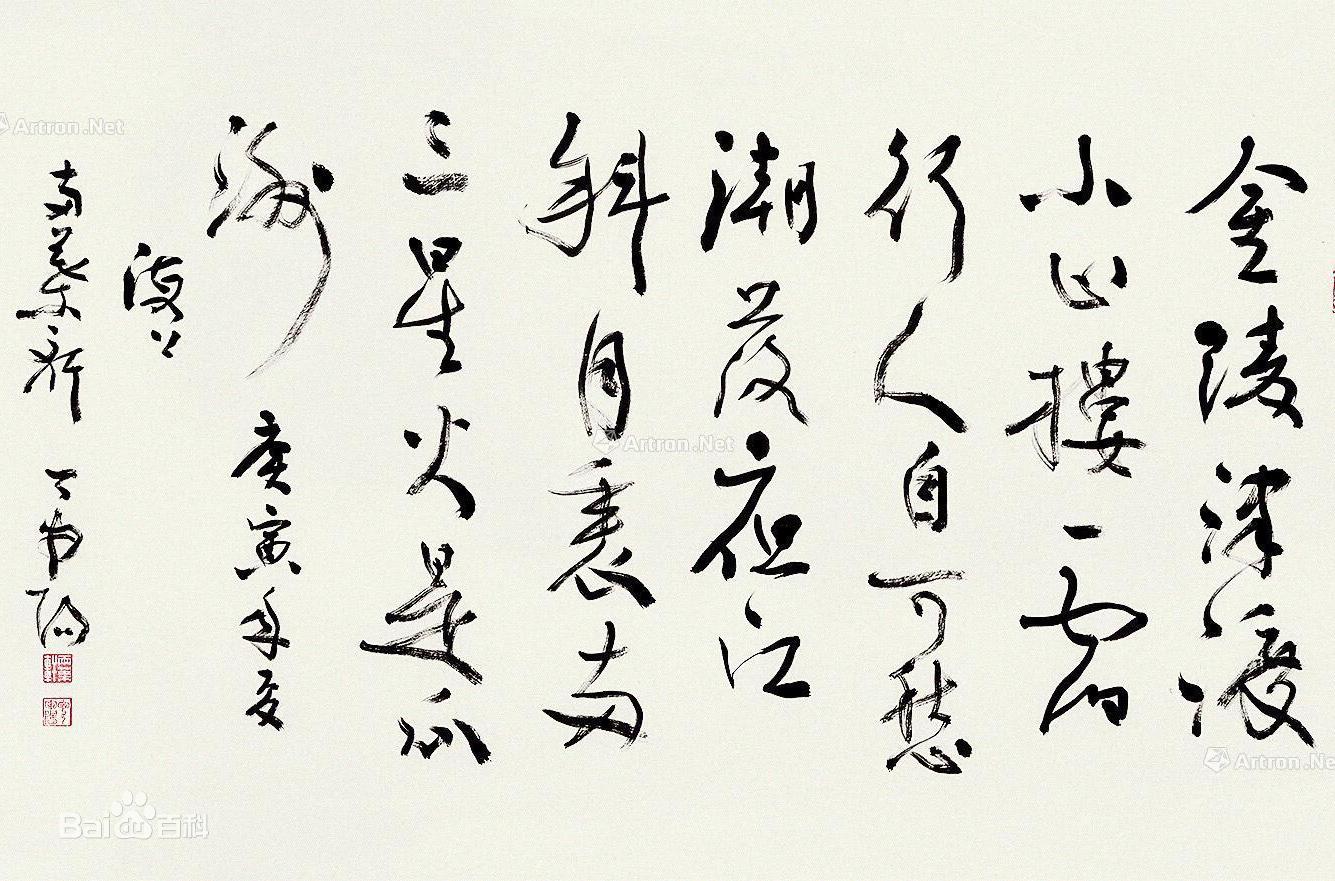 金陵津渡
小山樓一宿
行人自可愁
潮落夜江
斜月裏兩
三星火是瓜
洲 庚寅年夏
Artron.Net
Artron.Net
Artron.Net
Bai百科